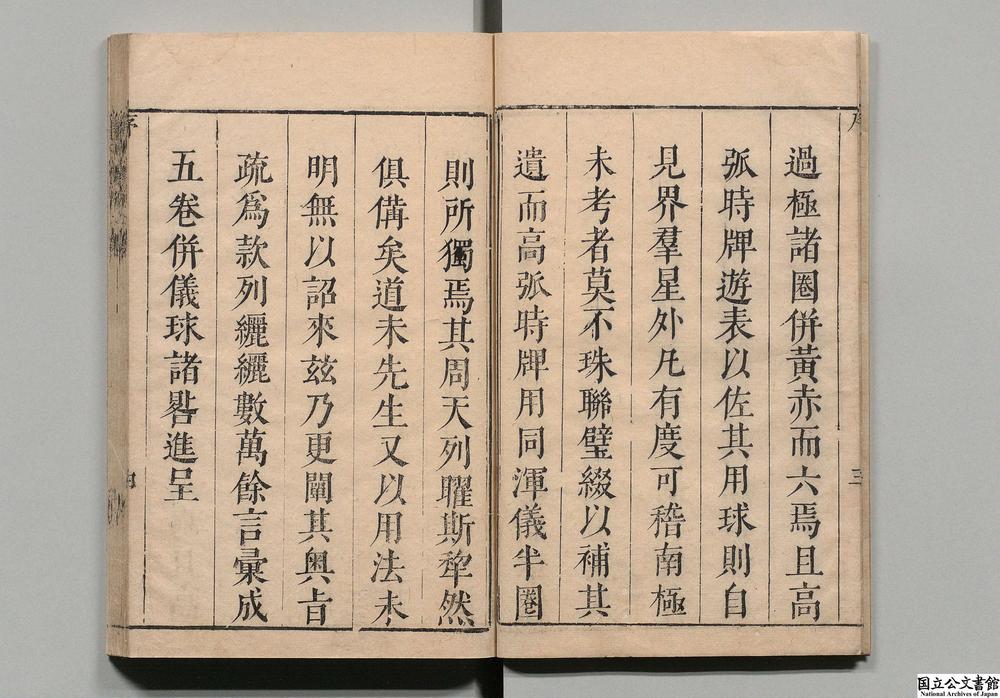 過極諸圈併黃赤而六焉且高
弧時牌遊表以佐其用球則自
見界羣星外凡有度可稽南極
未考者莫不珠聯璧綴以補其
遺而高弧時牌用同渾儀半圈
則所獨焉其周天列曜斯犂然
俱備矣道未先生又以用法未
明無以詔來兹乃更闡其奥㫖
疏爲款列纚纚數萬餘言彚成
五卷併儀球諸器進呈
序
三
国立公文書館
National Archives of Japan